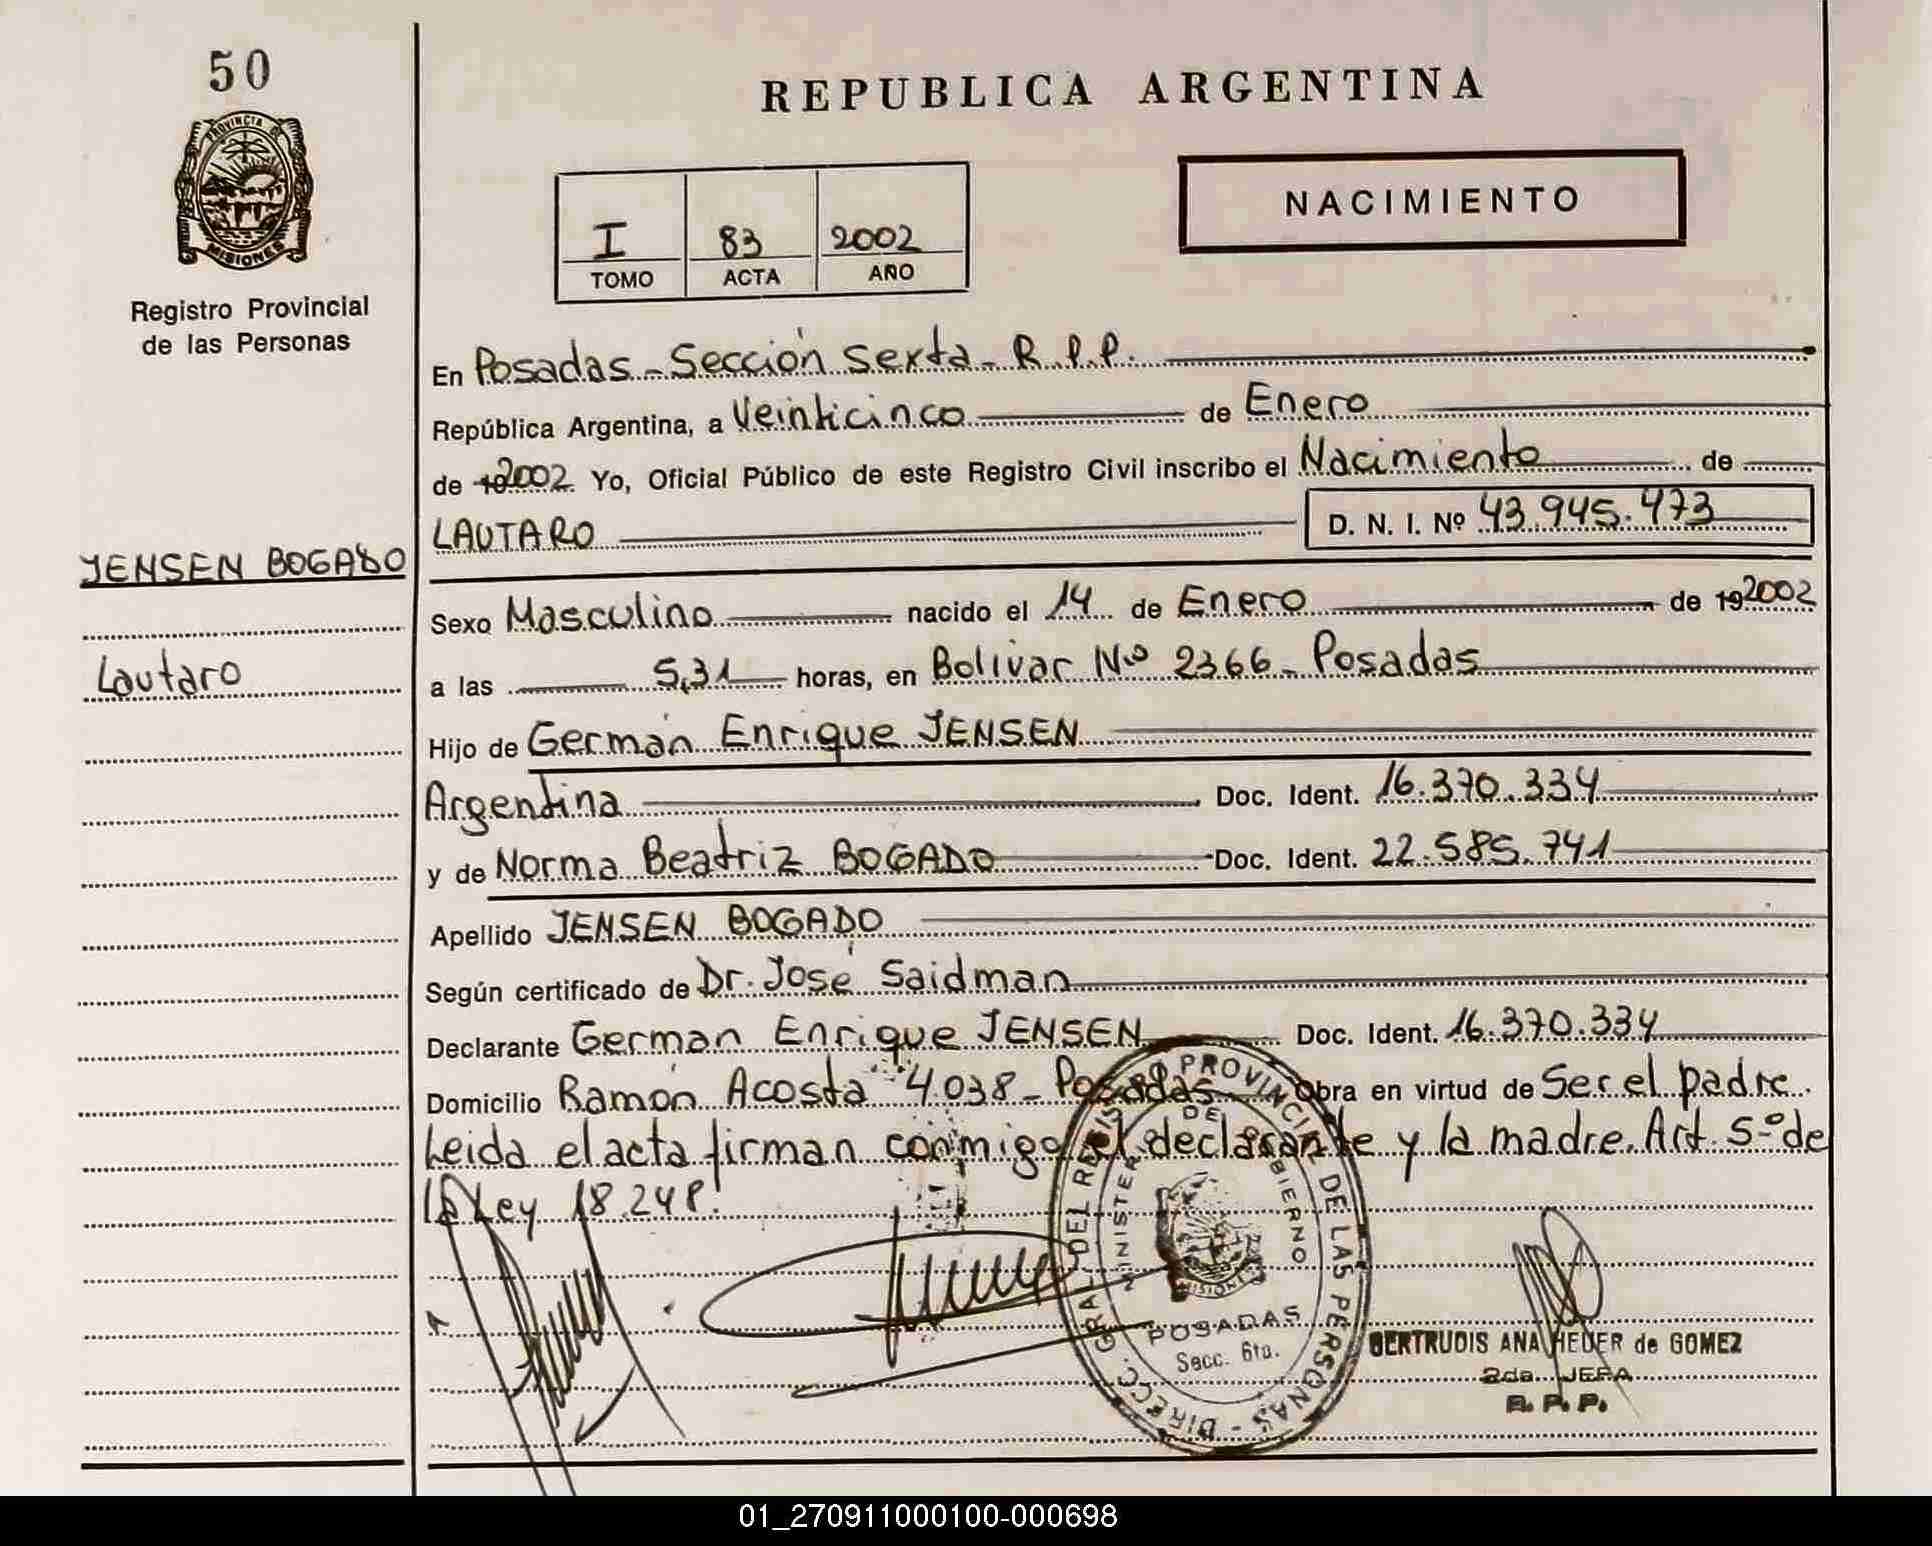 50
REPUBLICA ARGENTINA
PROVINCIA DE
MISIONES
Registro Provincial
de las Personas
NACIMIENTO
I 83 2002
TOMO ACTA AÑO
En Posadas - Sección Sexta - R.P.P.
República Argentina, a Veinticinco de Enero
de 192002 Yo, Oficial Público de este Registro Civil inscribo el Nacimiento de
LAUTARO D. N. I. Nº 43.945.473
JENSEN BOGADO
Lautaro
Sexo Masculino nacido el 14 de Enero de 192002
a las 5,31 horas, en Bolívar Nº 2366 - Posadas
Hijo de Germán Enrique JENSEN
Argentina Doc. Ident. 16.370.334
y de Norma Beatriz BOGADO Doc. Ident. 22.585.741
Apellido JENSEN BOGADO
Según certificado de Dr. José Saidman
Declarante German Enrique JENSEN Doc. Ident. 16.370.334
Domicilio Ramón Acosta 4038 - Posadas Obra en virtud de Ser el padre.
Leida el acta firman conmigo el declarante y la madre. Art. 5º de
la Ley 18.248.
DIRECC. GRAL. DEL REGISTRO PROVINCIAL DE LAS PERSONAS -
MINISTERIO DE GOBIERNO
MISIONES
POSADAS
Secc. 6ta.
GERTRUDIS ANA HEDER de GOMEZ
2da. JEFA
R. P. P.
01_270911000100-000698